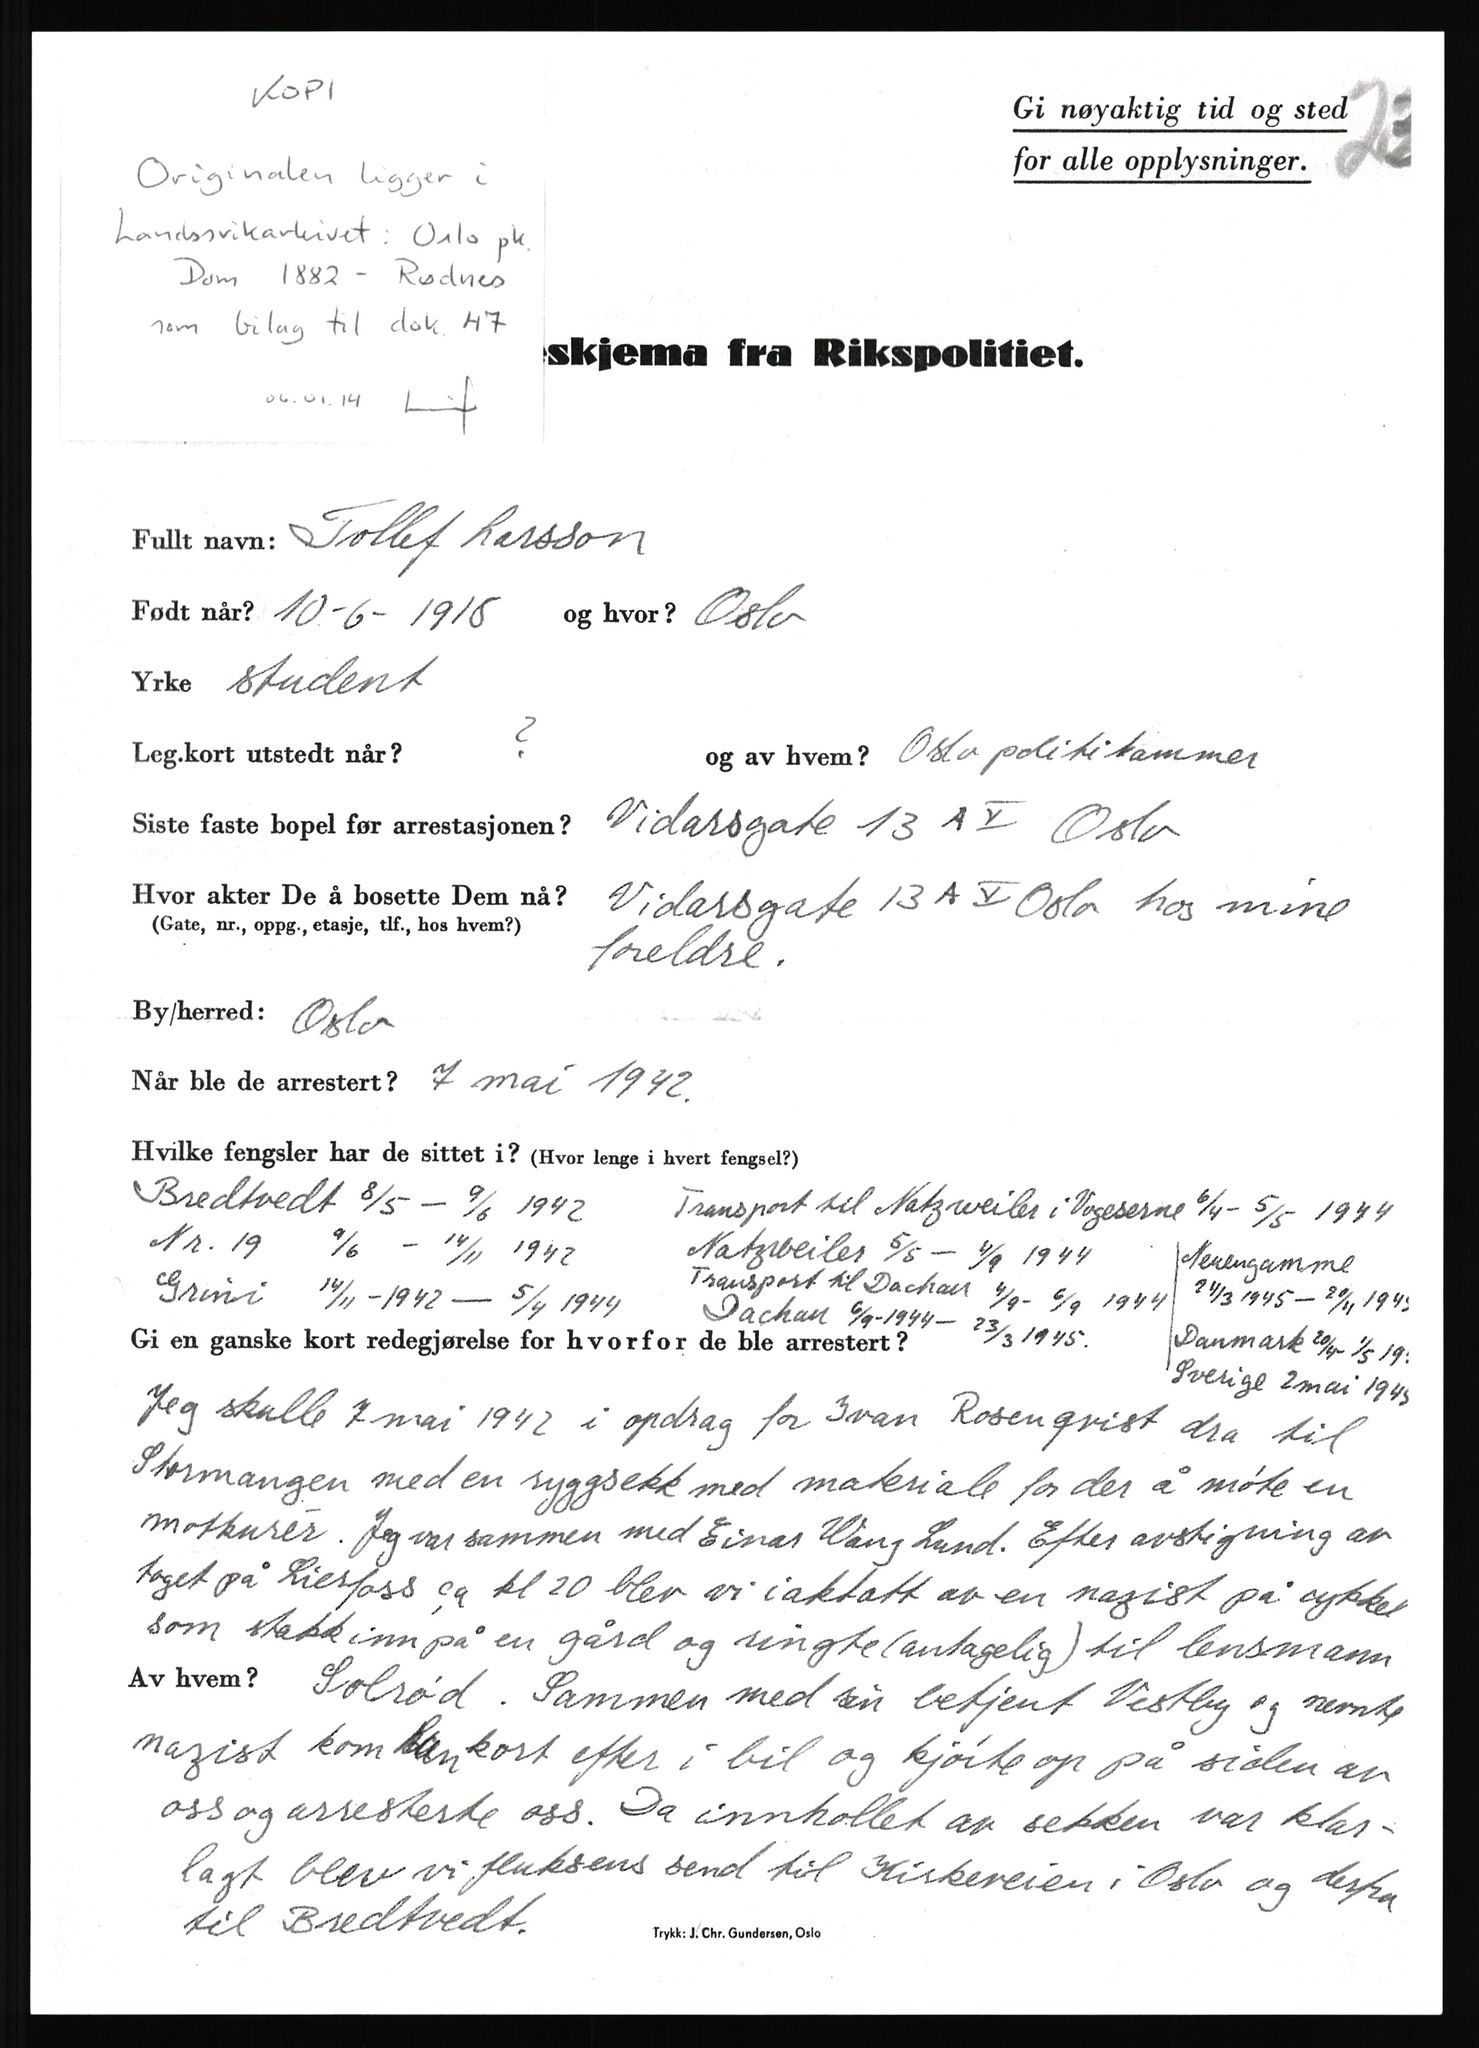 KOPI
Originalen ligger i
Landssvikarkivet: Oslo pk.
Dom 1882 - Rødnes
som bilag til dok. 47
06.01.14
Gi nøyaktig tid og sted
for alle opplysninger.
eskjema fra Rikspolitiet.
Fullt navn: Tollef Larsson
Født når? 10-6-1918 og hvor? Oslo
Yrke student
Leg.kort utstedt når? ? og av hvem? Oslo politikammer
Siste faste bopel før arrestasjonen? Vidarsgate 13 A V Oslo
Hvor akter De å bosette Dem nå? Vidarsgate 13 A V Oslo hos mine
(Gate, nr., oppg., etasje, tlf., hos hvem?) foreldre.
By/herred: Oslo
Når ble de arrestert? 7 mai 1942.
Hvilke fengsler har de sittet i? (Hvor lenge i hvert fengsel?)
Bredtvedt 8/5 — 9/6 1942
Nr. 19 9/6 - 14/11 1942
Grini 14/11 - 1942 — 5/4 1944
Transport til Natzweiler i Vogeserne 6/4 - 5/5 1944
Natzweiler 5/5 — 4/9 1944
Transport til Dachau 4/9 - 6/9 1944
Dachau 6/9 - 1944 — 23/3 1945.
Neuengamme
24/3 1945 — 20/11 1945
Danmark 20/4 - 1/5 19
Sverige 2 mai 1945
Gi en ganske kort redegjørelse for hvorfor de ble arrestert?
Jeg skulle 7 mai 1942 i opdrag for Ivan Rosenqvist dra til
Stormangen med en ryggsekk med materiale for der å møte en
motkurér. Jeg var sammen med Einar Wang Lund. Efter avstigning av
toget på Lierfoss ca kl 20 blev vi iaktatt av en nazist på cykkel
som stakk inn på en gård og ringte (antagelig) til lensmann
Av hvem? Solrød. Sammen med sin betjent Vestby og nevnte
nazist kom han kort efter i bil og kjørte op på siden av
oss og arresterte oss. Da innhollet av sekken var klar-
lagt blev vi fluksens send til Kirkeveien i Oslo og derfra
til Bredtvedt.
Trykk: J. Chr. Gundersen, Oslo